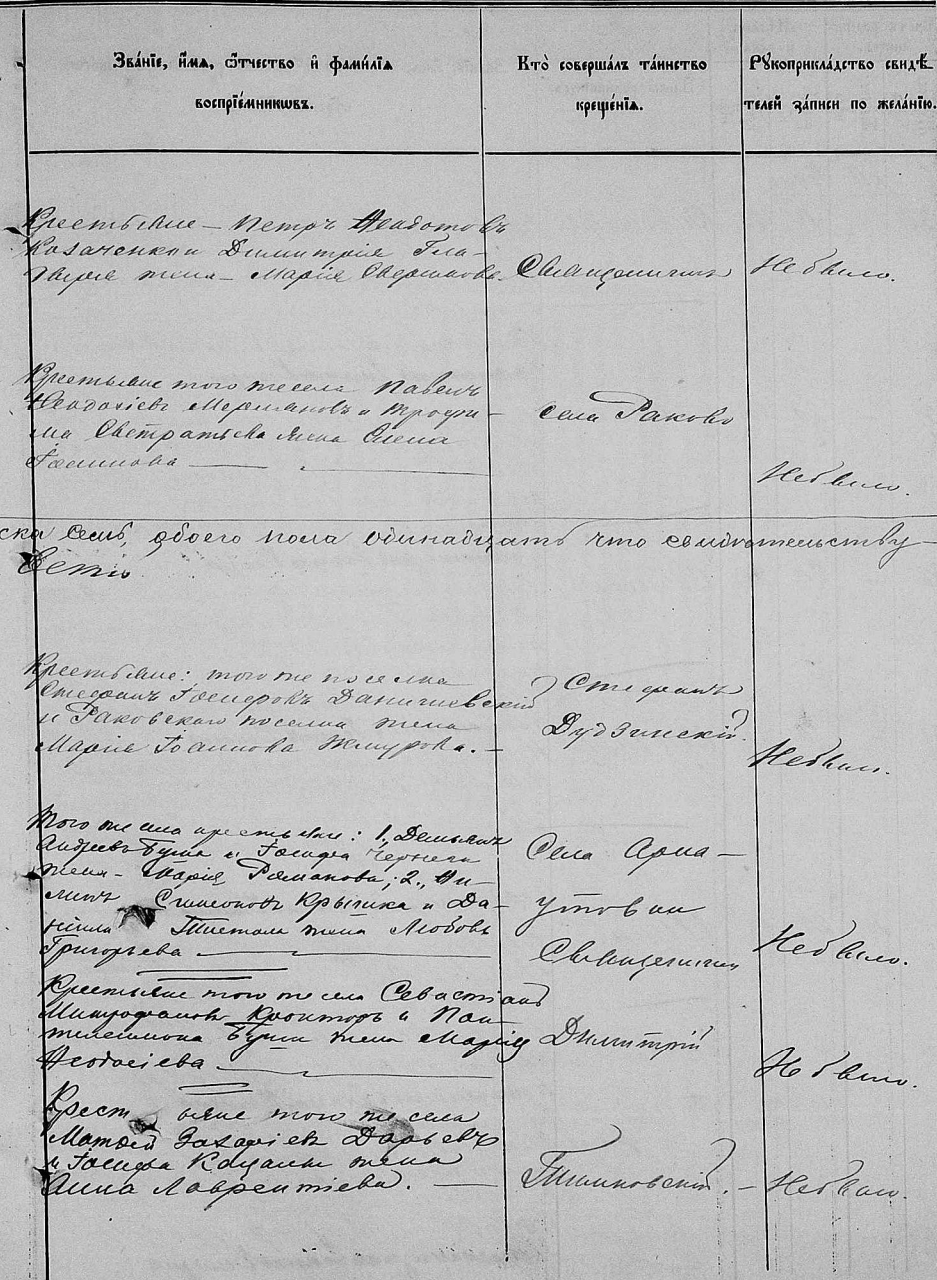 Зва́нїе, и҆́мѧ, ѻ҆́тчество и҆ фами́лїѧ
воспрїе́мникѡвъ.
Кто̀ соверша́лъ та́инство
креще́нїѧ.
Рꙋкоприкла́дство свидѣ́-
телей за́писи по жела́нїю.
Крестьяне – Петръ Ѳеодотовъ
Казаченко и Димитрія
жена – Марія
Священникъ
Не было.
Крестьяне того же села Павелъ
Ѳеодосіевъ и Трофи-
ма жена Елена
Іоаннова
села Раково
Не было.
ска семь, обоего пола одинадцать что свидѣтельству-
Крестьяне: того же поселка
Стефанъ Іосифовъ Данишевскій
и Раковскаго поселка жена
Марія Іоаннова Жмурова. –
Стефанъ
Дудзинскій.
Не было.
Того же села крестьяне: 1., Демьянъ
Андреевъ Буша и Іосифа Чернега
жена – Марія Романова; 2.,
Симеоновъ Крычка и Да-
ніила жена Любовь
Григорьева
Села Арна-
утовки
Священникъ
Не было.
Крестьяне того же села Севастіанъ
Митрофановъ и Пан-
телеимона Буши жена Марія
Ѳеодосіева
Димитрій
Не было.
Крестьяне того же села
Матѳей Захаріевъ
и Іосифа жена
Анна Лаврентіева. –
Не было.